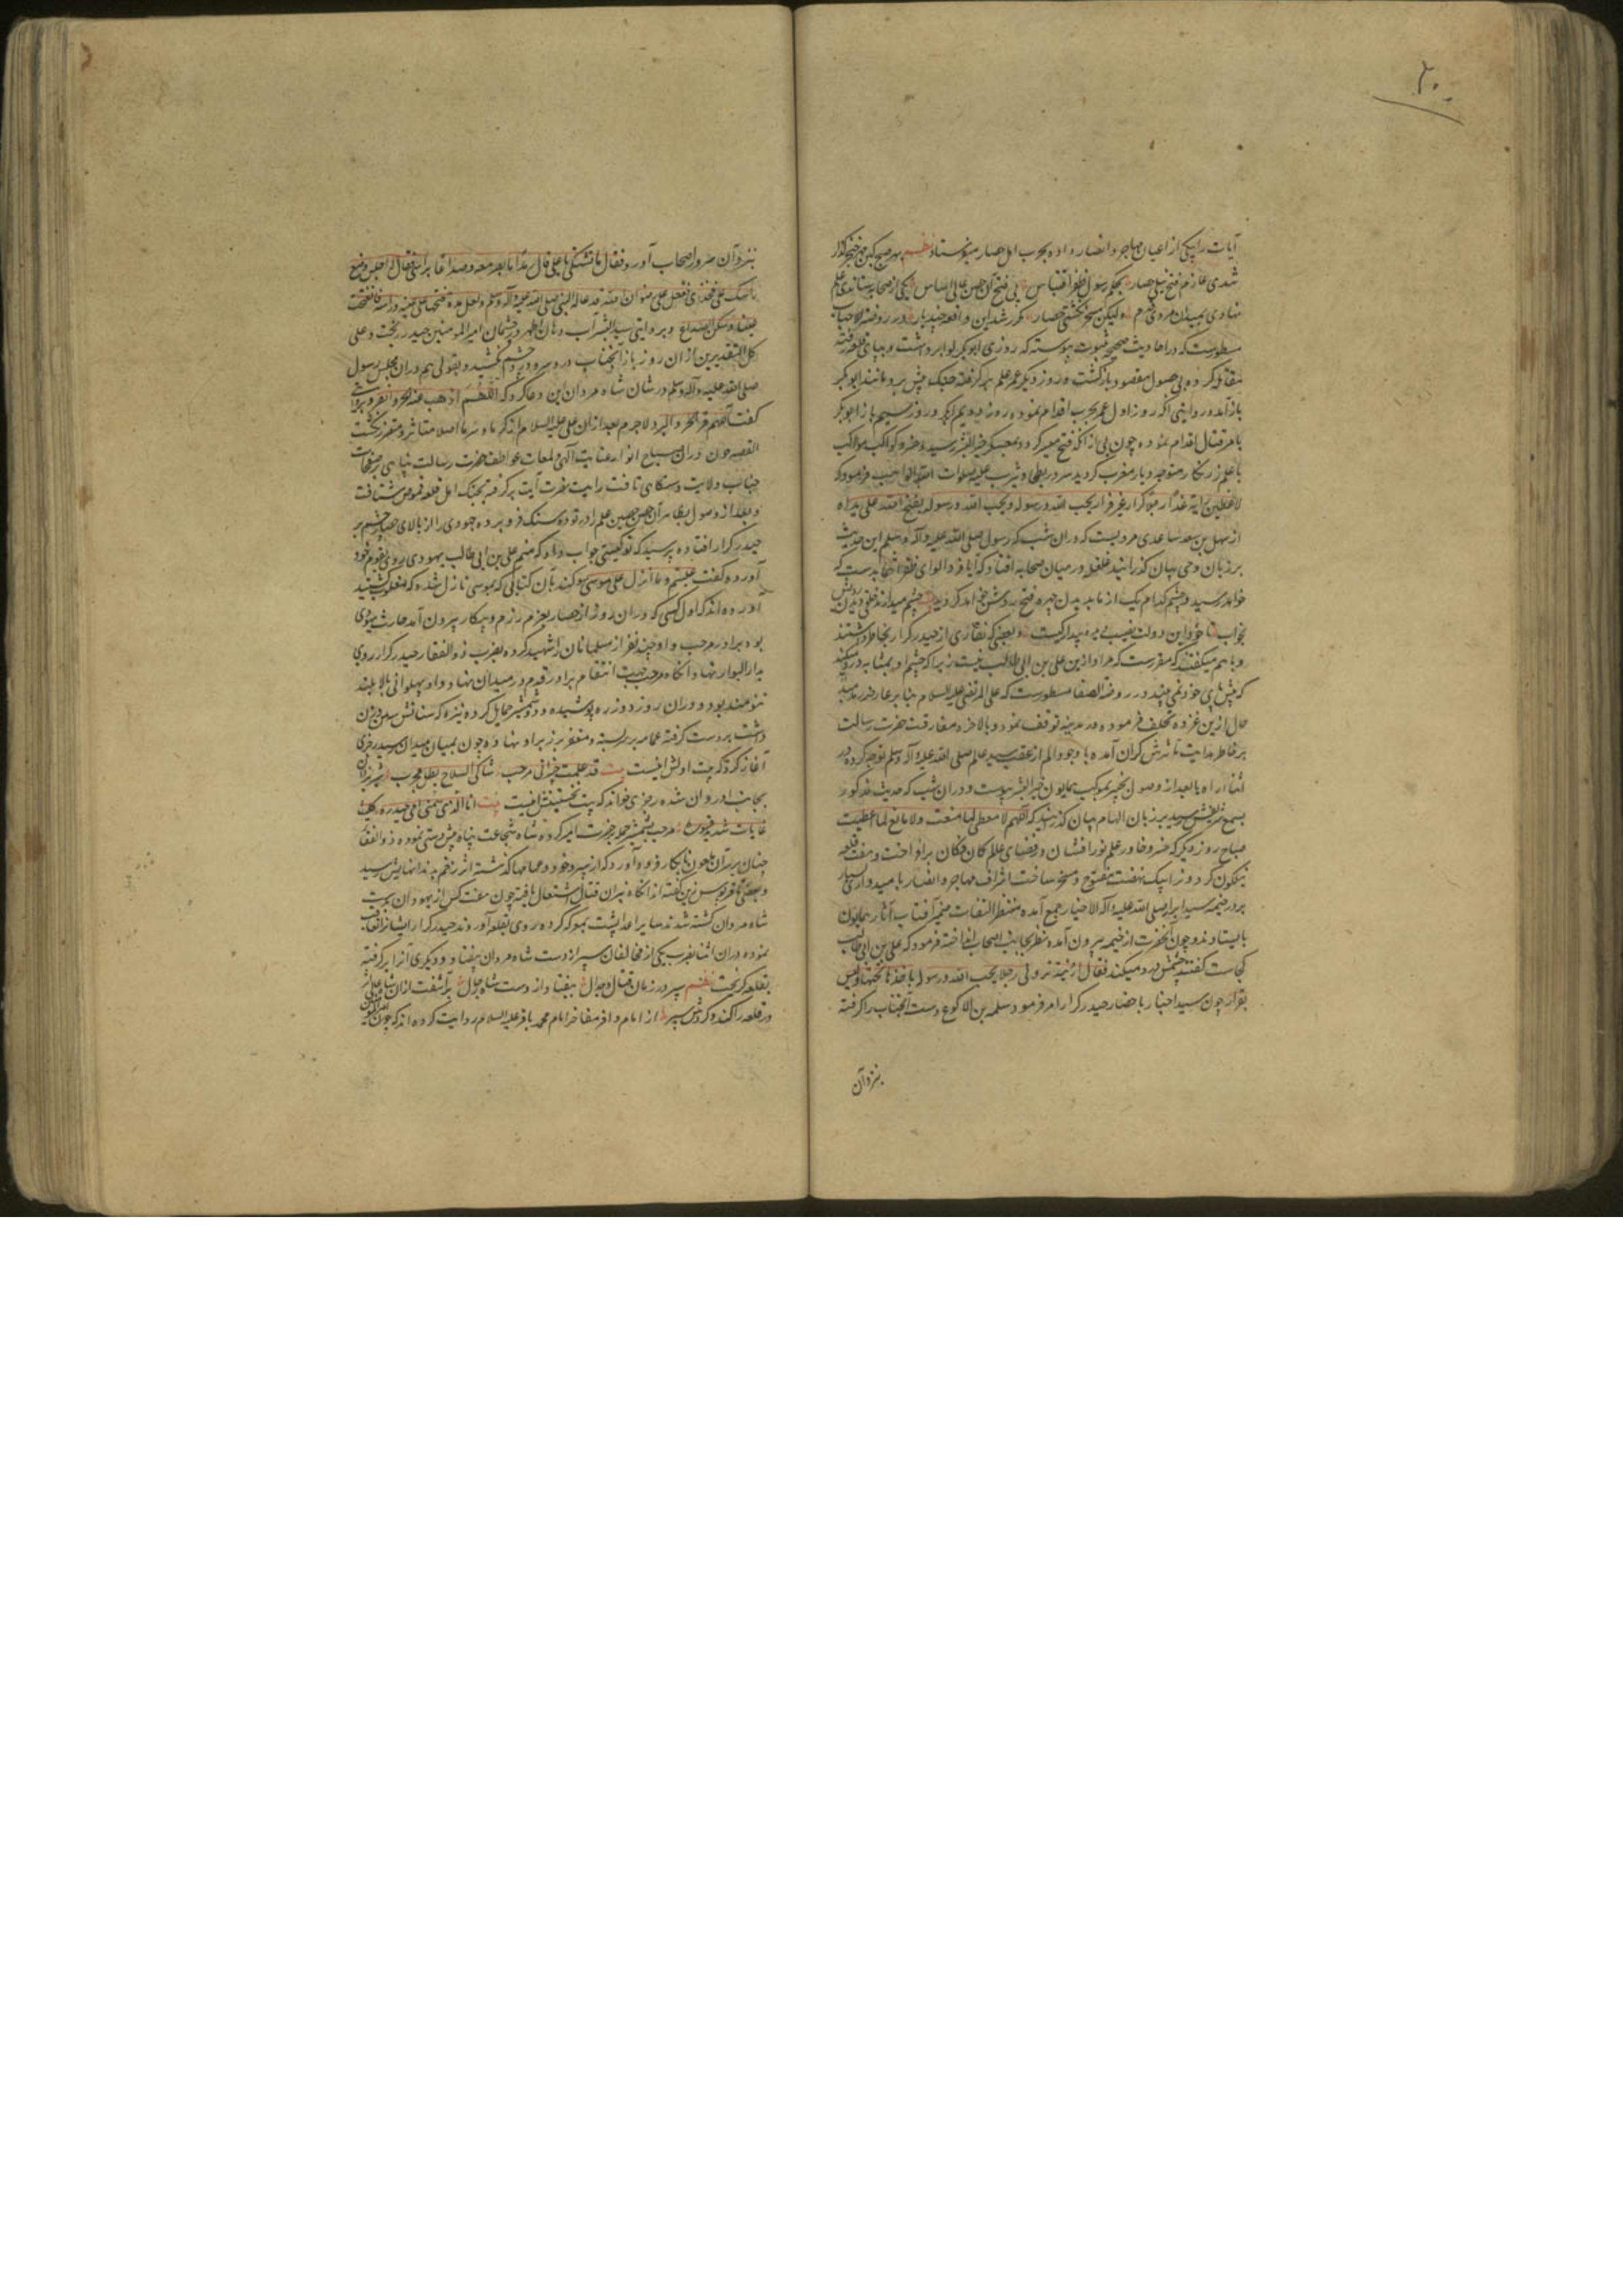 ۲۰۰
آیات را بیکی از اعیان مهاجر و انصار داده بحرب اهل حصار میفرستاد نظم بهر صبح کین
شدی عازم فتح نیلی حصار بحکم رسول ظفر اقتباس پی فتح آن حصن عالی اساس یکی از صحابه ستاندی علم
نهادی بمیدان مردی قدم ولیکن مسخر نگشتی حصار مکرر شد این واقعه چند بار و در روضة الاحباب
مسطورست که در احادیث صحیحه بثبوت پیوسته که روزی ابوبکر لوا برداشت و بپای قلعه رفته
مقاتله کرده بی حصول مقصود بازگشت و روز دیگر عمر علم برگرفته بجنک پیش برد و مانند ابوبکر
باز آمد و روایتی آنکه روز اول عمر بحرب اقدام نموده روز دویم ابوبکر و روز سیم باز ابوبکر
بامر قتال اقدام نموده چون بی از آنکه فتح میسر کردد بمعسکر خیر البشر رسید و خسرو کواکب مواکب
با علم زرنکار متوجه دیار مغرب کردید سرور بطحی و یثرب علیه صلوات الله الواهب فرمود که
لاعطین الرایة غدا رجلا کرارا غیر فرار یحب الله و رسوله و یحب الله و رسوله یفتح الله علی یداه
از سهل بن سعد ساعدی مرویست که دران شب که رسول صلی الله علیه و آله و سلم این حدیث
بر زبان وحی بیان کذرانید غلغله در میان صحابه افتاد که آیا فردا لوای ظفر انتما بدست که
خواهد رسید و چشم کدام یک از ما بدیدن چهره فتح روشن خواهد کردید
بخواب تا خود این دولت نصیب دیده بیدار کیست و بعضی که نقاری از حیدر کرار بخاطر داشتند
و باهم میکفتند که مقررست که مراد ازین علی بن ابی طالب نیست زیرا که چشم او بمثابه درد میکند
که پیش پای خود نمی بیند و در روضة الصفا مسطورست که علی المرتضی علیه السلام بنابر عارضه رمد
حال ازین غزوه تخلف فرموده در مدینه توقف نمود و بالاخره مفارقت حضرت رسالت
بر خاطر هدایت مآثرش کران آمده با وجود الم از عقب سید عالم صلی الله علیه و آله و سلم توجه کرده در
اثناء راه یا بعد از وصول بخیبر بموکب همایون خیر البشر پیوست و دران شب که حدیث مذکور
بسمع شریفش رسید بر زبان الهام بیان کذرانید که اللهم لا معطی لما منعت و لا مانع لما اعطیت
صباح روز دیکر که خسرو خاور علم نور افشان در فضای عالم کان فکان برافراخت و هفت قلعه
نیلکون کردون را بیک نهضت مفتوح و مسخر ساخت اشراف مهاجر و انصار با امیدواری بسیار
بر در خیمه سید ابرار صلی الله علیه و آله الاخیار جمع آمده منتظر التفات ضمیر آفتاب آثار همایون
بایستادند و چون آنحضرت از خیمه بیرون آمده نظر بجانب اصحاب انداخته فرمود که علی بن ابی طالب
کجاست کفتند چشمش درد میکند فقال
بقرار چون سید اخیار باحضار حیدر کرار امر فرمود سلمه بن الاکوع دست آنجناب را کرفته
بنزد آن
بنزد آن سرور اصحاب آورد فقال ما تشتکی یا علی قال رمدا ما ابصر معه و صداعا برأسی فقال اجلس و ضع
رأسک علی فخذی ففعل علی رضوان الله
و بروایتی سید البشر آب دهان اطهر در چشمان امیر المومنین حیدر ریخت و علی
کل التقدیرین از ان روز باز آنجناب درد سر و درد چشم نکشید و بقولی هم دران مجلس رسول
صلی الله علیه و آله و سلم در شان شاه مردان این دعا کرد که اللهم اذهب عنه الحر و القر و بروایتی
کفت اللهم قه الحر و البرد لاجرم بعد ازان علی علیه السلام از کرما و سرما اصلا متاثر و متضرر نکشت
القصه چون دران صباح انوار عنایت الهی و لمعات عواطف حضرت رسالت پناهی بر صفحات
جناب ولایت دستکاهی تافت رایت نصرت آیت برکرفته بجنک اهل قلعه قموص شتافت
و بعد از وصول بظاهر آن حصن حصین علم را در توده سنک فرو برده جهودی را از بالای حصار چشم بر
حیدر کرار افتاده پرسید که تو کیستی جواب داد که منم علی بن ابی طالب یهودی روی بقوم خود
آورده کفت غلبتم و ما انزل علی موسی سوکند بآن کتابی که بموسی نازل شده که مغلوب کشتید
آورده اند که اول کسی که دران روز از حصار بعزم رزم و پیکار بیرون آمد حارث یهودی
بود برادر مرحب و او چند نفر از مسلمانان را شهید کرده بضرب ذوالفقار حیدر کرار روی
بدار البوار نهاد آنکاه مرحب جهت انتقام برادر قدم در میدان نهاد و او پهلوانی بالا بلند
تنومند بود و دران روز دو زره پوشیده و دو شمشیر حمایل کرده نیزه که سنانش سه من وزن
داشت بدست کرفته عمامه بر سر بسته و مغفر بر زبر او نهاده چون بمیان میدان رسید رجزی
آغاز کرد که بیت اولش اینست بیت قد علمت خیبر انی مرحب شاکی السلاح بطل مجرب شیر یزدان
بجانب او روان شده رجزی خواند که بیت نخستینش اینست بیت انا الذی سمتنی امی حیدره
غابات شدید قسوره مرحب بشمشیر حمله بر حضرت امیر کرده شاه شجاعت پناه پیش دستی نموده ذوالفقار
چنان بر سر آن ملعون نابکار فرود آورد که از سپر و خود و عمامها کذشته اثر زخم بدندانهایش رسید
و بعضی تا قربوس زین کفته اند آنکاه نیران قتال اشتعال یافته چون هفت کس از یهودان بدست
شاه مردان کشته شدند سایر اعدا پشت بمعرکه کرده روی بقلعه آوردند حیدر کرار ایشانرا تعاقب
نموده دران اثنا بضرب یکی از مخالفان سپر از دست شاه مردان بیفتاد و دیکری آنرا برکرفته
بقلعه کریخت نظم سپر در زمان قتال و جدال بیفتاد از دست شاه جلال برآشفت ازان شاه عالی اثر
در قلعه را کند و کردش سپر از امام وافر مفاخر امام محمد باقر علیه السلام روایت کرده اند که چون